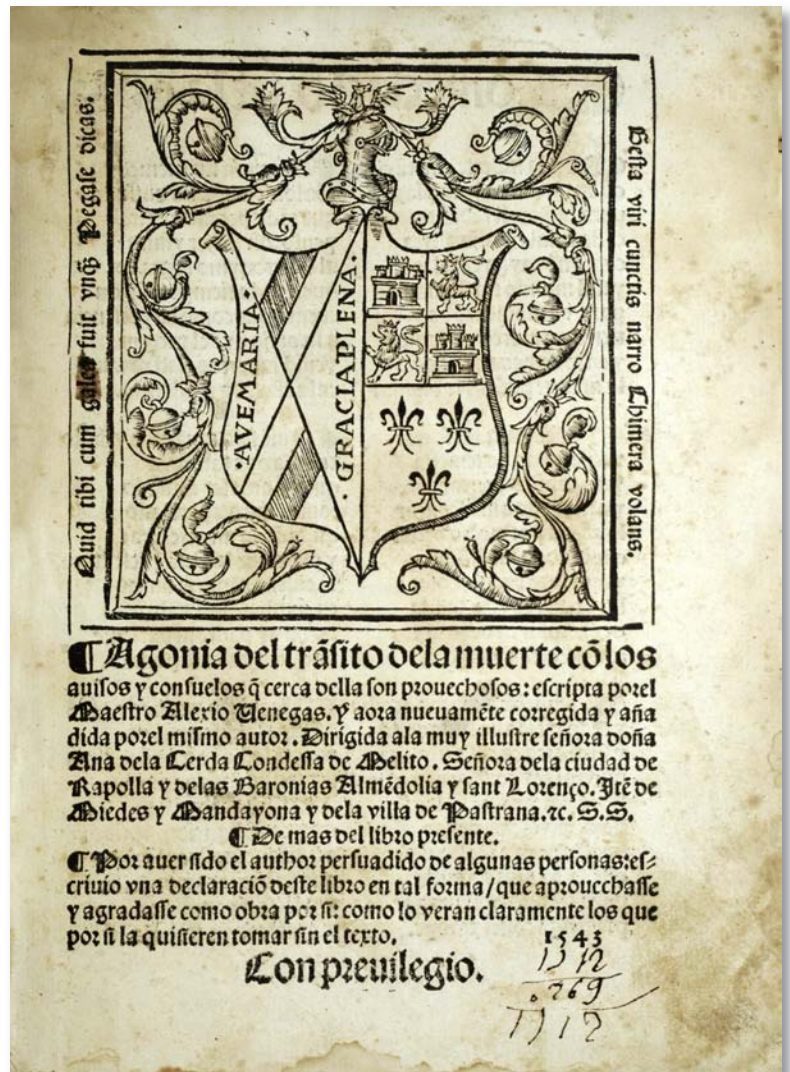 Quid tibi cum galea fuit vnq̃ʒ Pegase dicas.
Gesta viri cunctis narro Chimera volans.
·AVEMARIA·
·GRACIAPLENA·
¶Agonia del trãsito dela muerte cõ los
auisos y consuelos q̃ cerca della son prouechosos: escripta porel
Maestro Alexio Uenegas. Y aora nueuamẽte corregida y aña
dida porel mismo autor. Dirigida ala muy illustre señora doña
Ana dela Cerda Condessa de Melito. Señora dela ciudad de
Rapolla y delas Baronias Almẽdolia y sant Lorenço. Itẽ de
Miedes y Mandayona y dela villa de Pastrana.⁊c. S.S.
¶De mas del libro presente.
¶Por auer sido el author persuadido de algunas personas: es⸗
criuio vna declaraciõ deste libro en tal forma/que aprouechasse
y agradasse como obra por si: como lo veran claramente los que
por si la quisieren tomar sin el texto.
1543
Con preuilegio.